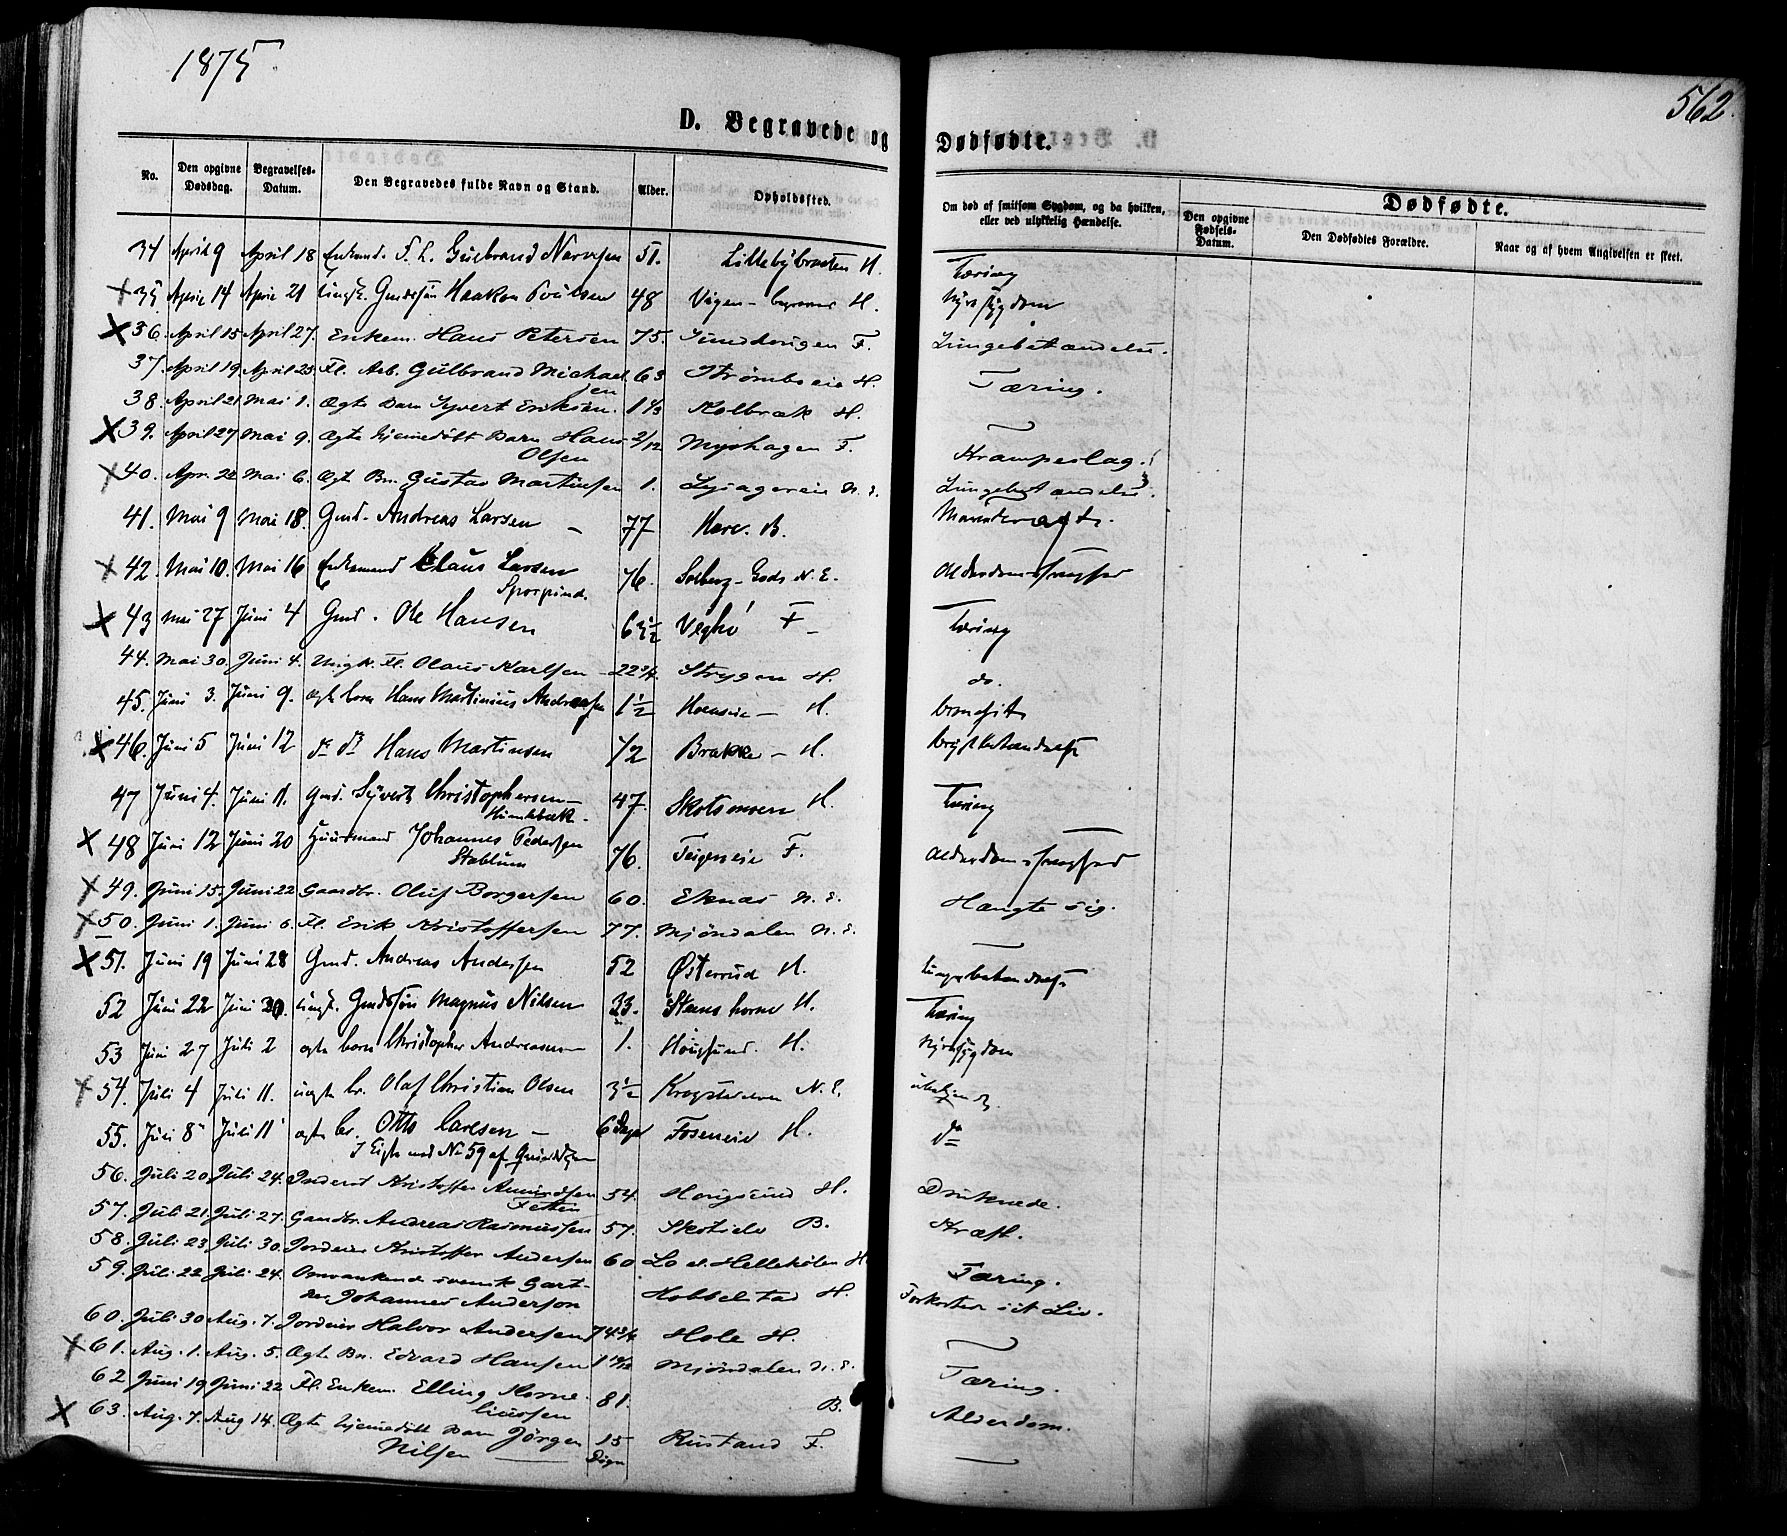 1875
562.
D. Begravede og Dødfødte.
No. Den opgivne Dødsdag. Begravelses-Datum. Den Begravedes fulde Navn og Stand. Alder. Opholdssted. Om død af smitsom Sygdom, og da hvilken, eller ved ulykkelig Hændelse. Dødfødte.
Den opgivne Fødsels-Datum. Den Dødfødtes Forældre. Naar og af hvem Angivelsen er skeet.
34 April 9 April 18 Enkemd. F. L. Gulbrand Narvesen 51. Lillebybraaten H. Tæring
35 April 14 April 21 Ungk. Gmdssøn Haakon Poulsen 48 Vigen - H. Nyresygdom
36. April 15 April 27. Enkem. Hans Petersen 75. Sundhaugen F. Lungebetændelse.
37. April 19. April 25. Fl. Arb. Gulbrand Michael 63 Strømbseie H. Tæring.
sen
38. April 21 Mai 1. Ægte Barn Syvert Eriksen. 1 1/3 Kolbræk H.
39. April 27 Mai 9. Ægte hjemedøbt Barn Hans 2/12 Myrhagen F. Krampeslag.
Olsen
40. Apr. 28 Mai 6. Ægt. Bn. Gustav Martinsen 1. Lysagereie N. E. Lungebetændelse.
41. Mai 9 Mai 18. Gmd. Andreas Larsen - 77 Horv. B.
42. Mai 10. Mai 16 Enkemand Claus Larsen 76. Solberg-Gods N. E. Alderdomssvaghed
Sporpind.
43 Mai 27 Juni 4 Gmd. Ole Hansen 63 1/2 F - Tæring
44. Mai 30. Juni 4. Ungk. Fl. Olaus Karlsen - 22 3/4 Strygen H. do.
45. Juni 3. Juni 9. ægt. barn Hans Martinius Andersen 1 1/2 Hornseie - H. bronchit
46. Juni 5 Juni 12 do do Hans Martinsen 1/2 Brække - H. brystbetændelse
47 Juni 4. Juni 11. Gmd. Syvert Christophersen - 47. Skotsmoen H. Tæring
Humlebæk.
48 Juni 12 Juni 20 Huusmand Johannes Pedersen 76. Teigeneie F. Alderdomssvaghed
Stablum
49. Juni 15. Juni 22 Gaardbr. Oluf Borgersen 60. Eknæs N. E. Hængte sig.
50. Juni 1. Juni 6. Fl. Erik Kristoffersen 77. Mjøndalen N. E.
51. Juni 19 Juni 28 Gmd. Andreas Andersen 52 Østerud H. Lungebetændelse
52 Juni 22 Juni 30. Ungk. Gmdssøn Magnus Nilsen 33. Steenshorne H. Tæring
53 Juni 27 Juli 2 ægte barn Christopher Andreasen - 1. Hougsund. H. Nyresygdom
54. Juli 4 Juli 11. uægte br. Olaf Christian Olsen 3 1/2 Krogstadmoen N. E. ubekjendt.
55. Juli 8 Juli 11 ægte br. Otto Carlsen - 6 Dage Foseneie H. do
I Kiste med No 59 af
56. Juli 20. Juli 24. Inderst Kristoffer Amundsen 54. Hougsund H. Druknede.
Fetten
57. Juli 21. Juli 27. Gaardbr. Andreas Rasmussen 57. Skotselv B. Kræft.
58. Juli 23 Juli 30. Jordeier Kristoffer Andersen 60 Lo v. Hellekølen H. Tæring.
59. Juli 22 Juli 24. Omvankende svensk Gart- Hobbelstad H. Forkortede sit Liv.
ner Johannes Anderson
60. Juli 30 Aug. 7. Jordeier Halvor Andersen 74 3/4 Hole H.
61. Aug. 1. Aug. 5. Ægte Bn. Edvard Hansen 1 10/12 Mjøndalen N. E. Tæring.
62 Juni 19 Juni 22 Fl. Enkem. Elling Korne- 81. B. Alderdom.
liussen
63. Aug. 7. Aug 14. Ægte hjemedøbt Barn Jørgen 15 Rustand F.
Nilsen Dage